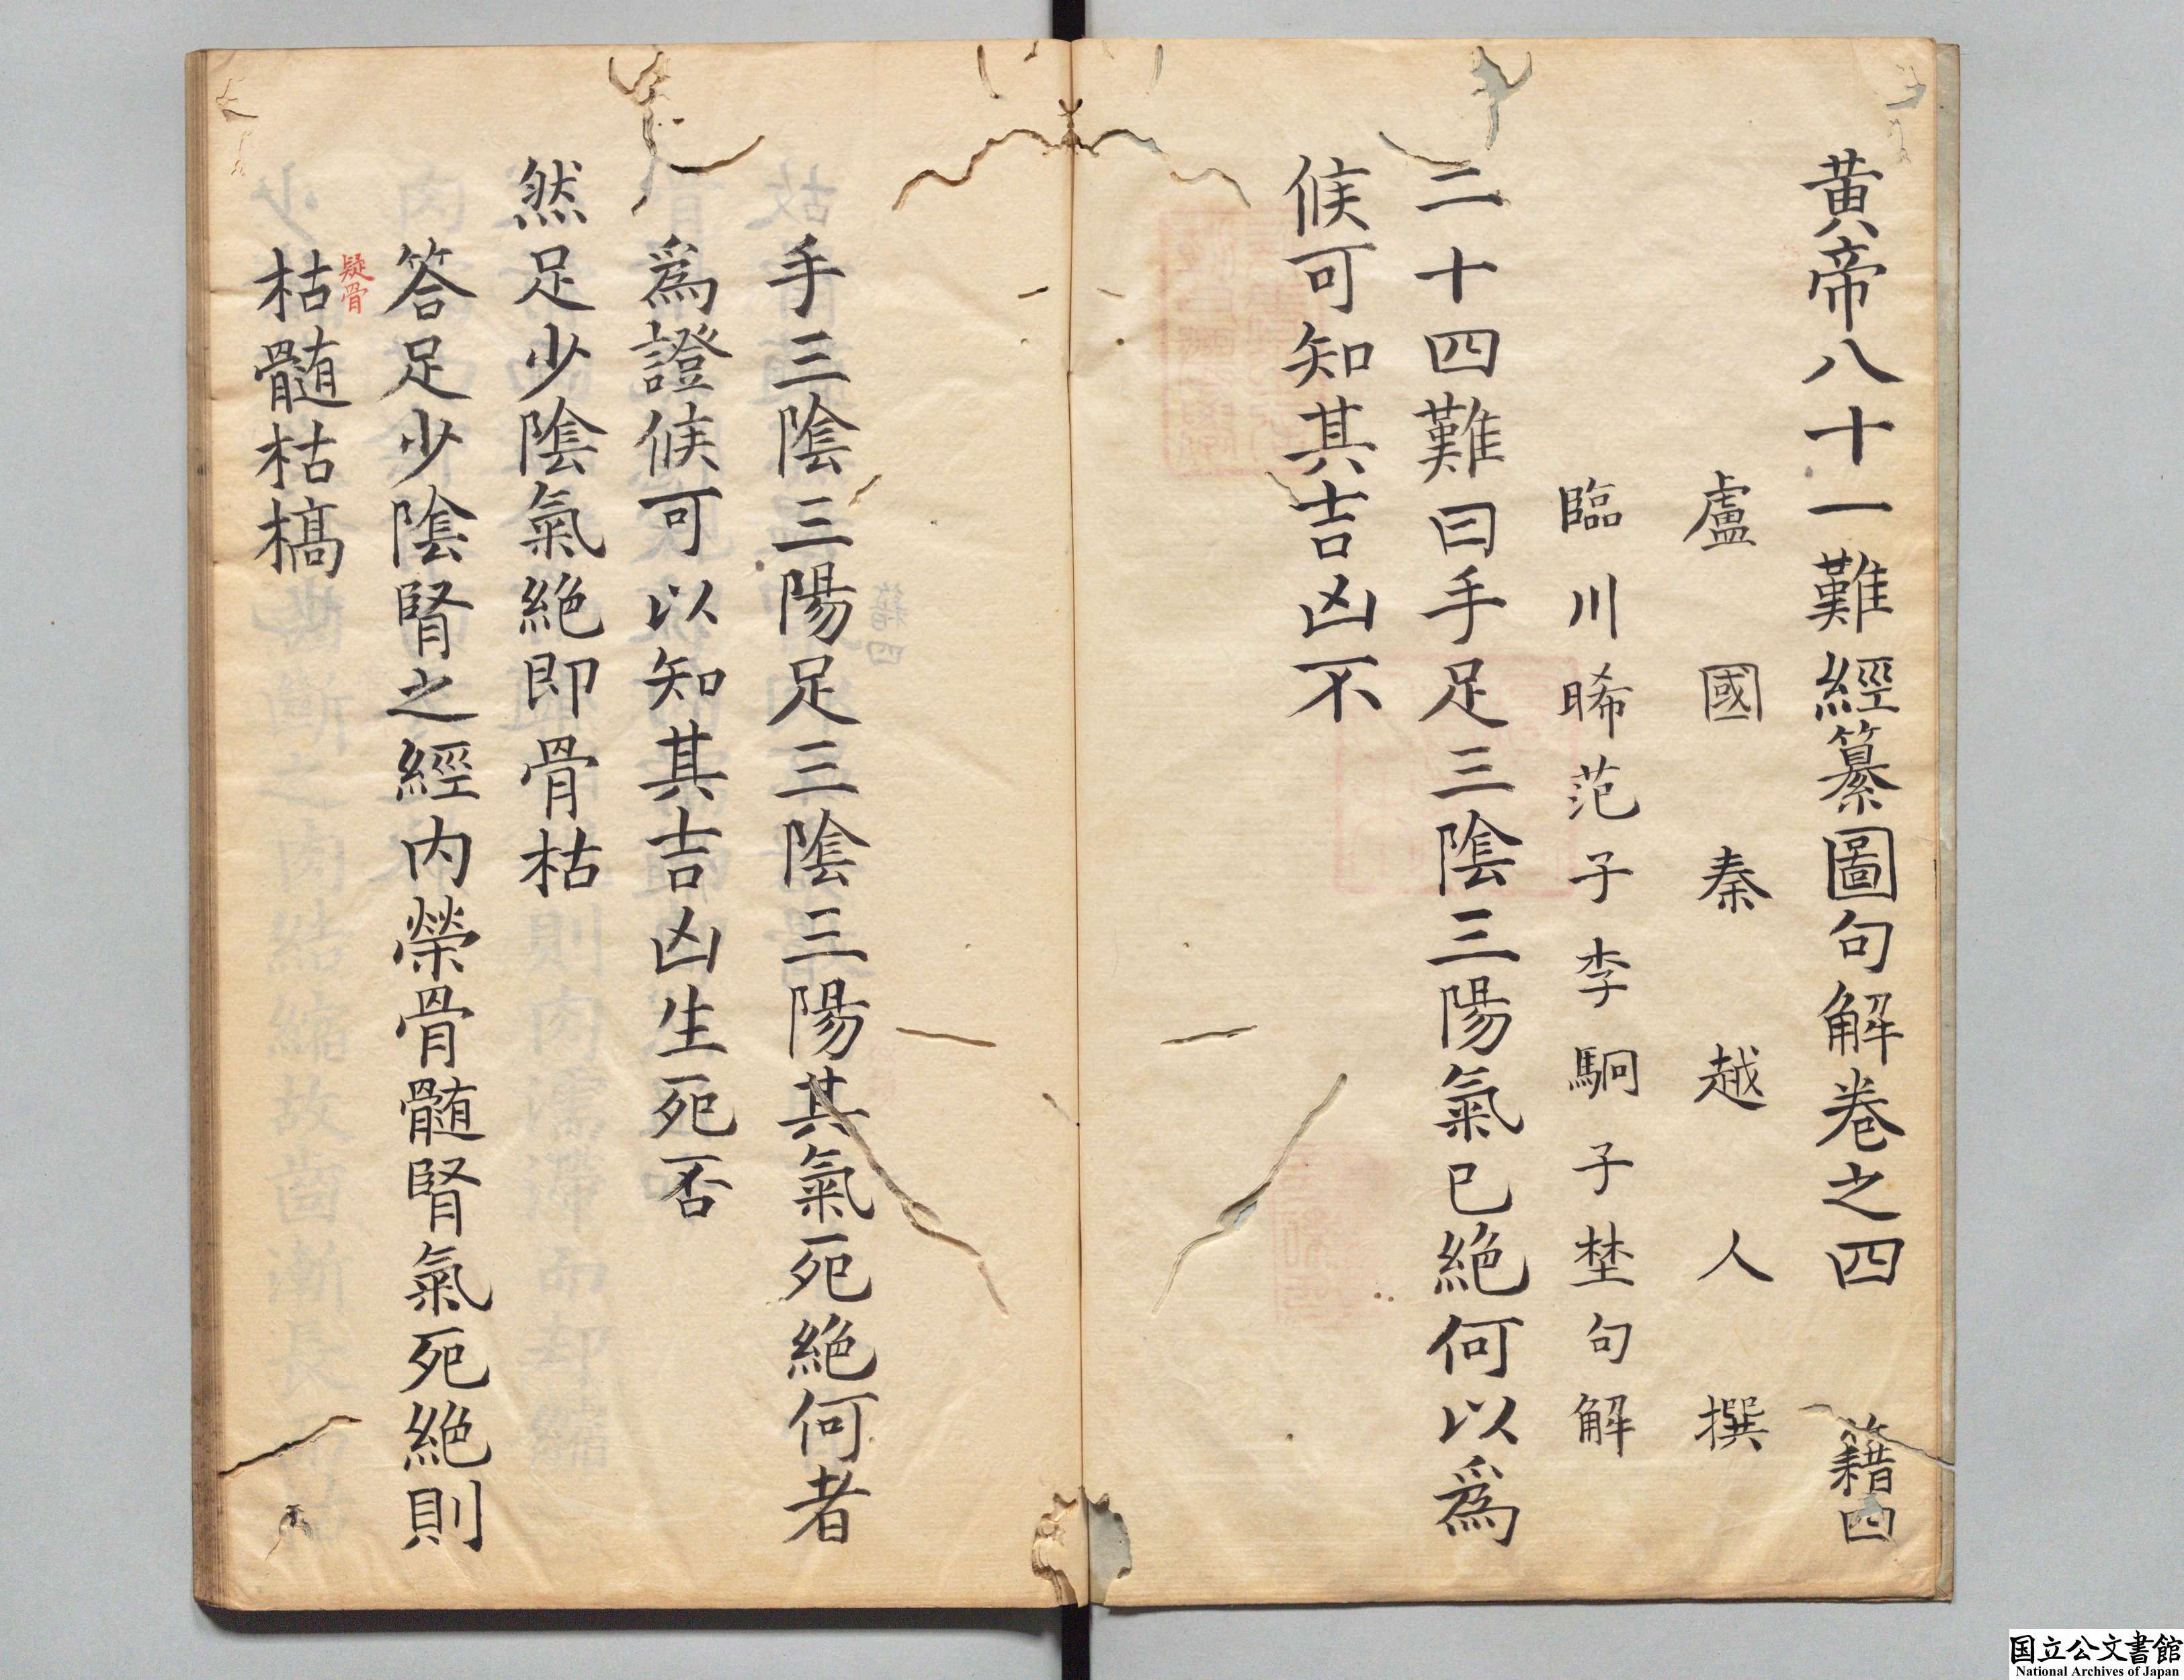 黄帝八十一難經纂圖句解卷之四 籍四
盧國秦越人撰
臨川晞范子李駉子埜句解
二十四難曰手足三陰三陽氣已絶何以爲
候可知其吉凶不
手三陰三陽足三陰三陽其氣死絶何者
爲證候可以知其吉凶生死否
然足少陰氣絶即骨枯
答足少陰腎之經内榮骨髓腎氣死絶則
疑骨
枯髓枯槁
国立公文書館
National Archives of Japan